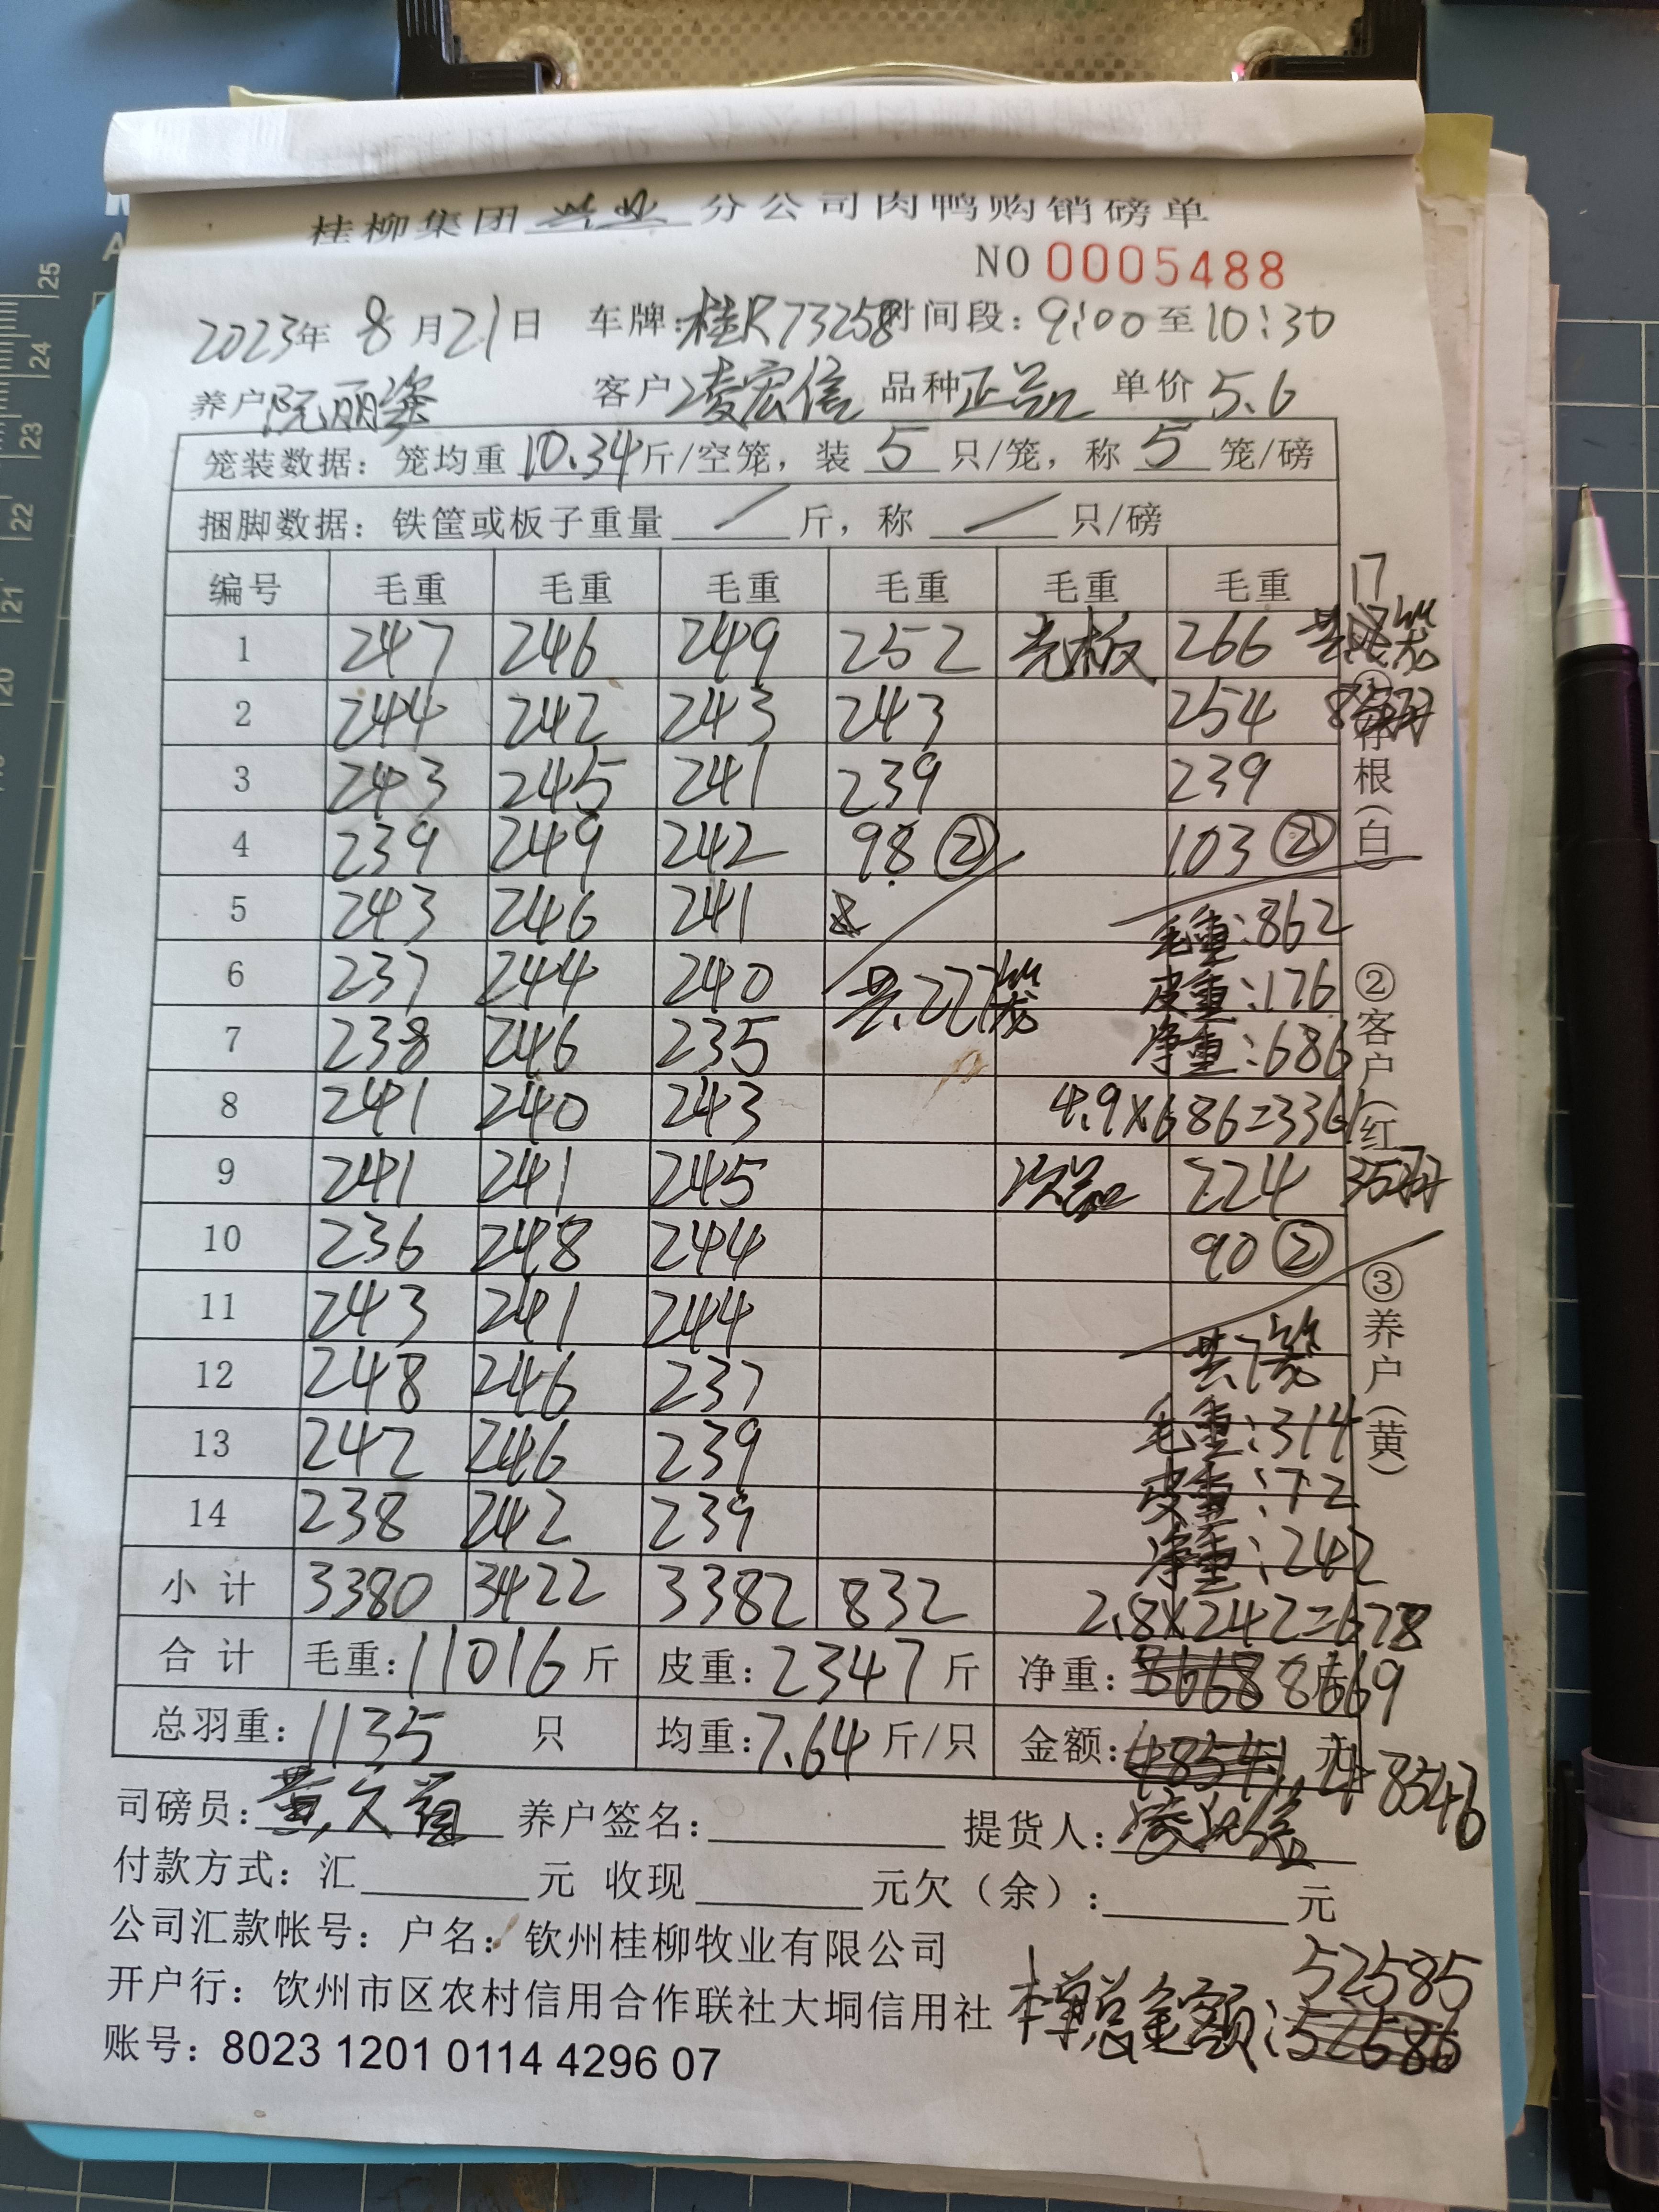 桂柳集团 兴业 分公司肉鸭购销磅单
NO 0005488
2023年 8月21日 车牌:桂R73258 时间段:9:00至10:30
养户 阮丽姿 客户 凌宏信 品种 正品 单价 5.6
笼装数据：笼均重 10.34 斤/空笼，装 5 只/笼，称 5 笼/磅
捆脚数据：铁筐或板子重量 / 斤，称 / 只/磅
编号 毛重 毛重 毛重 毛重 毛重 毛重 17
1 247 246 249 252 光板 266 共 笼
2 244 242 243 243 254
3 243 245 241 239 239
4 239 249 242 98② 103②
5 243 246 241 毛重:862
6 237 244 240 共227笼 皮重:176
7 238 246 235 净重:686
8 241 240 243 4.9×686=3361
9 241 241 245 次品 224 35羽
10 236 248 244 90②
11 243 241 244 共7笼
12 248 246 237 毛重:314
13 242 246 239 皮重:72
14 238 242 239 净重:242
小计 3380 3422 3382 832 2.8×242=678
合计 毛重:11016斤 皮重:2347斤 净重:8669
总羽重:1135 只 均重:7.64斤/只 金额: 元 48546
司磅员: 养户签名: 提货人:凌宏信
付款方式：汇 元 收现 元欠（余）: 元
公司汇款帐号：户名：钦州桂柳牧业有限公司
开户行：钦州市区农村信用合作联社大垌信用社
账号：8023 1201 0114 4296 07
本单总金额:52585
52586
①存根(白)
②客户(红)
③养户(黄)